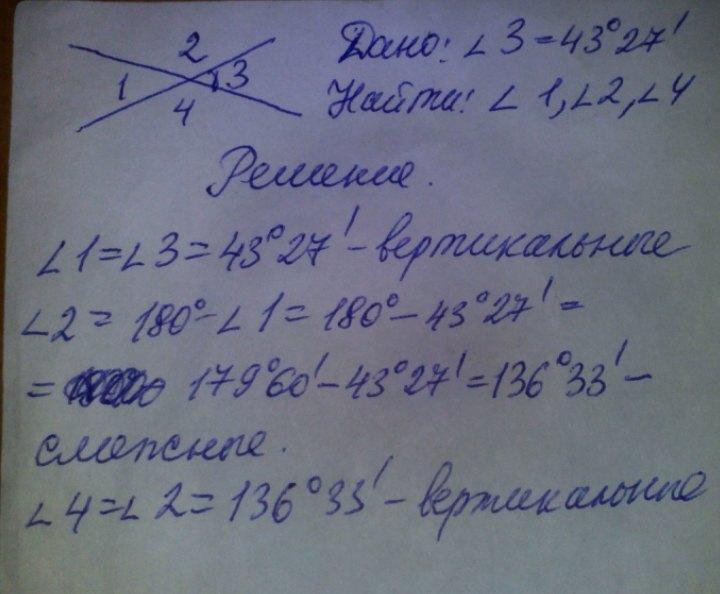 2
1
3
4
Дано: ∠3=43°27'
Найти: ∠1,∠2,∠4
Решение.
∠1=∠3=43°27' - вертикальные
∠2=180°-∠1=180°-43°27'=
= 179°60'-43°27'=136°33' -
смежные.
∠4=∠2=136°33' - вертикальные